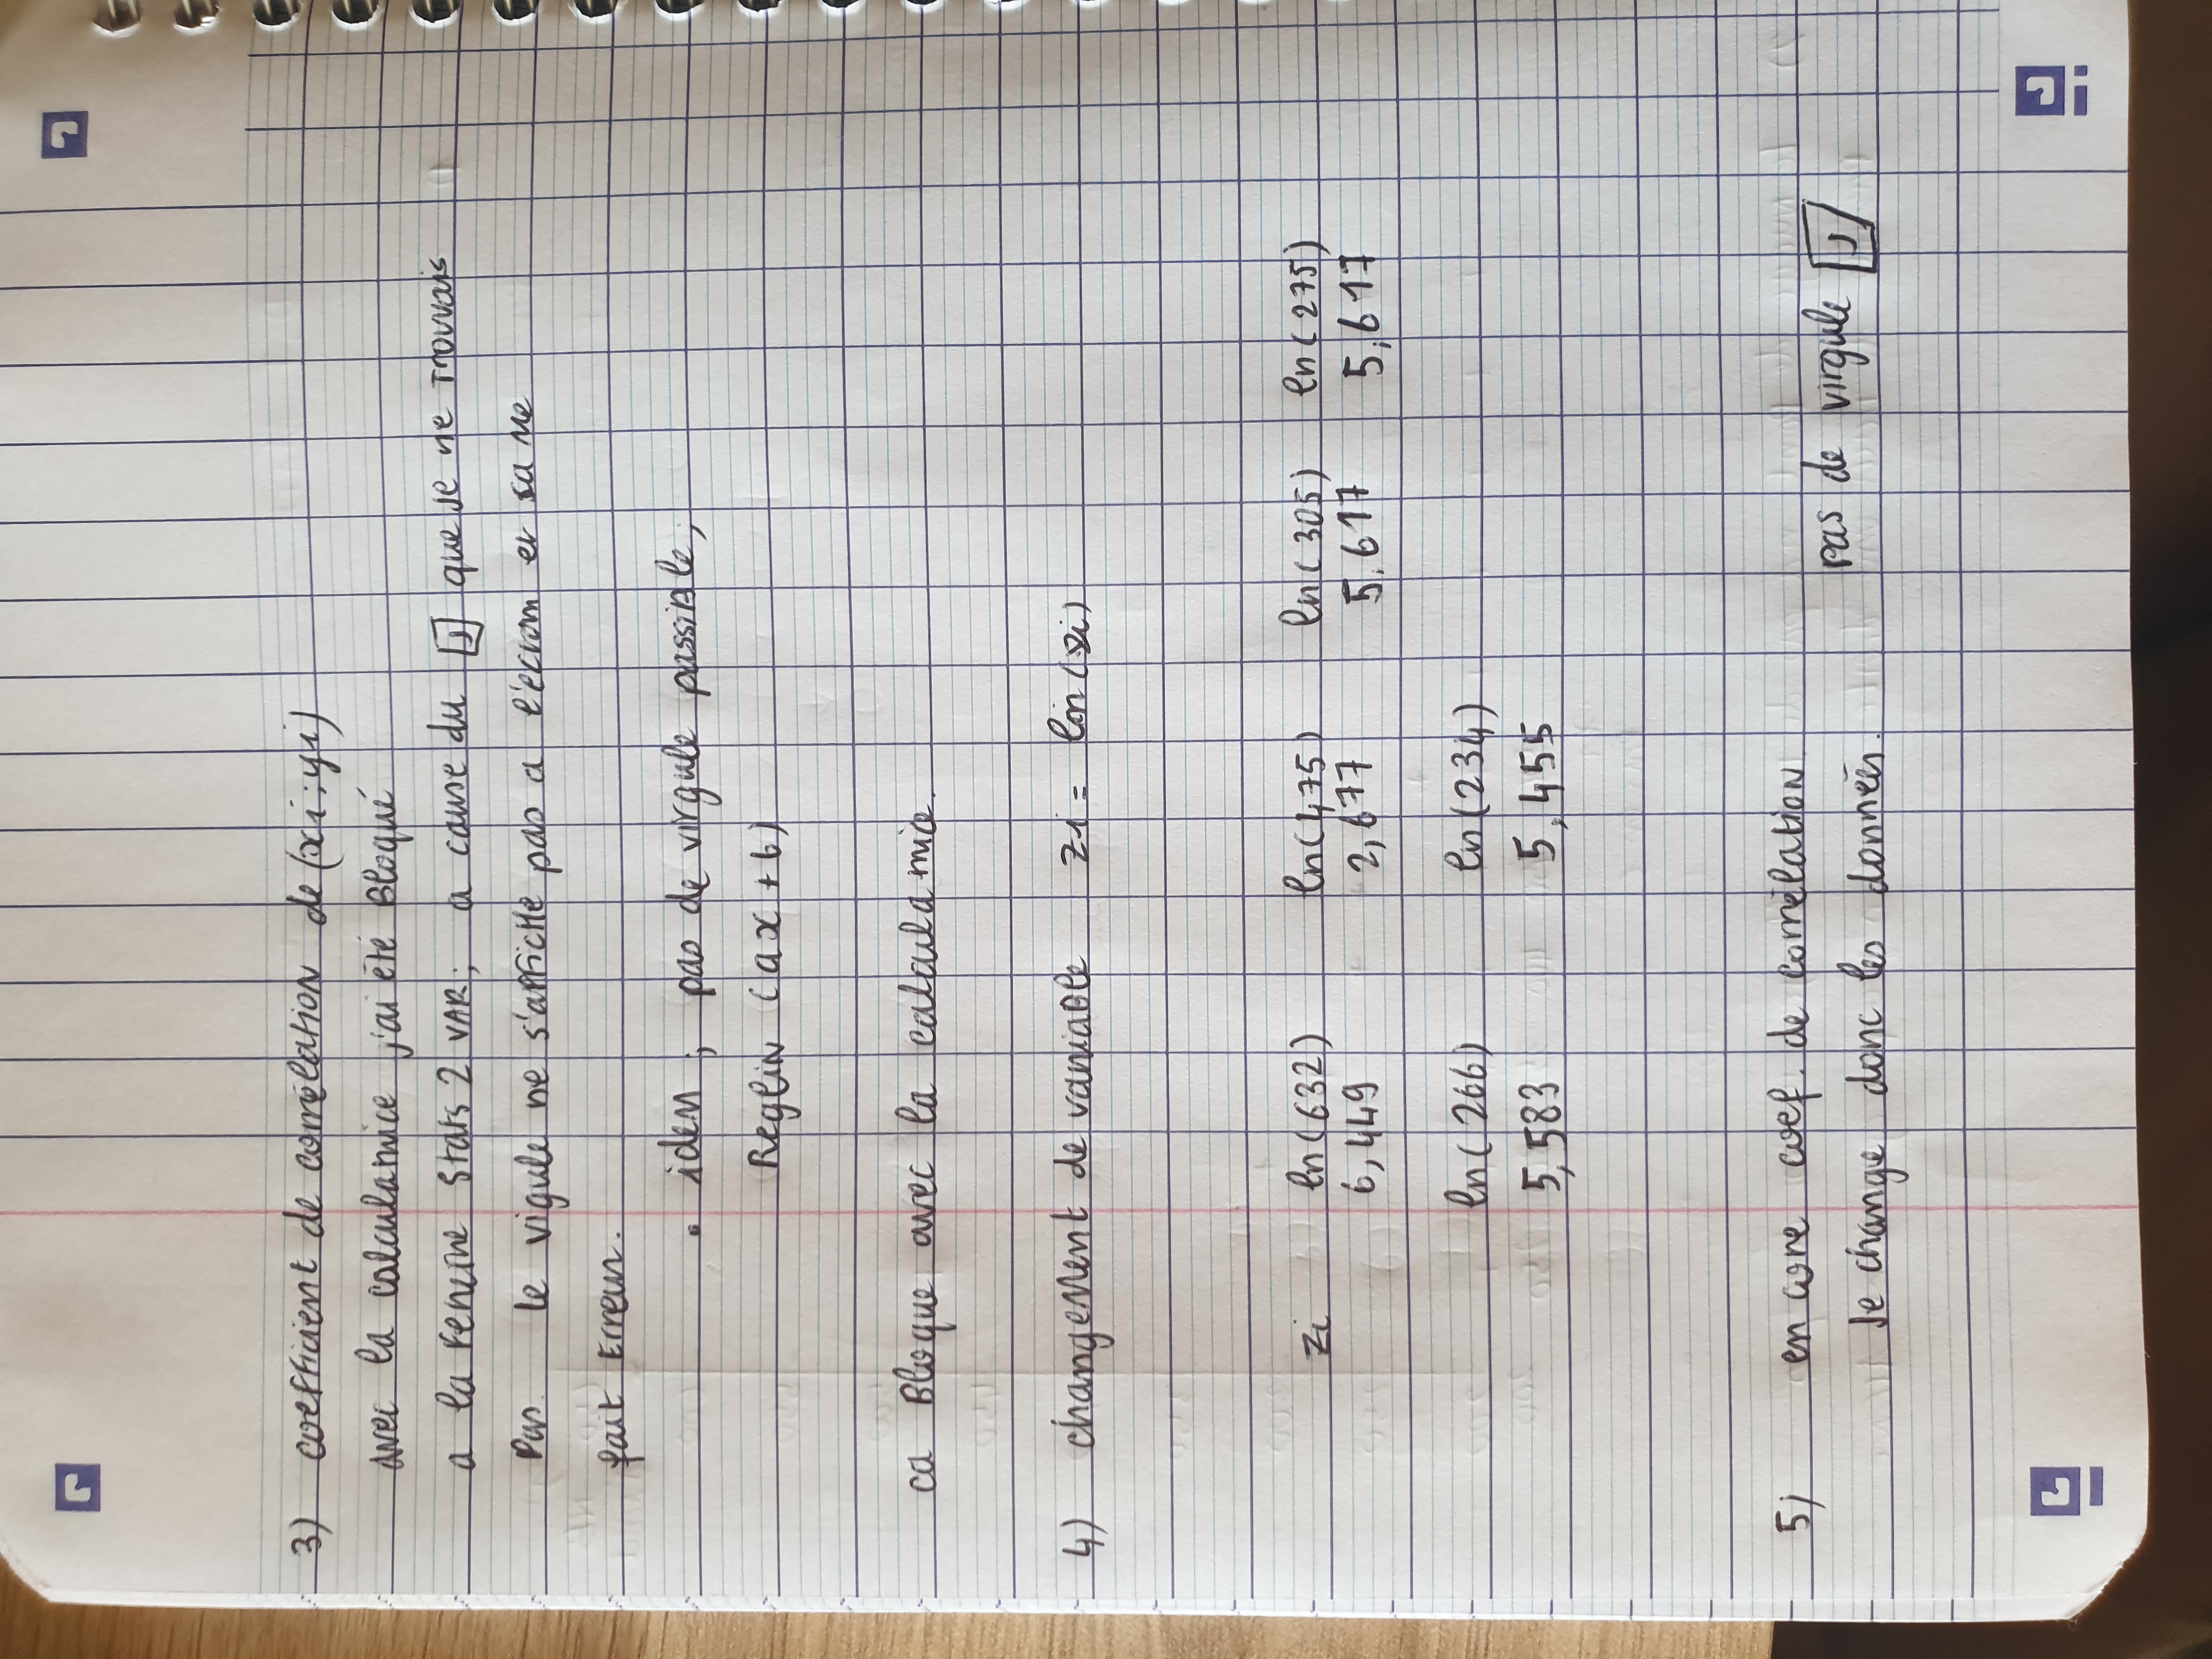 3) coefficient de corrélation de (xi; yi)
avec la calculatrice j'ai été Bloqué
a la Fenetre Stats 2 VAR; a cause du [,] que je ne Trouvais
Pas le vigule ne s'affiche pas a l'écran et sa me
fait Erreur.
• idem, pas de virgule possible,
Reglin (ax + b)
ca Bloque avec la calculatrice.
4) changement de variable zi = ln(xi)
zi ln(632) ln(475) ln(305) ln(275)
6,449 2,677 5,617 5,617
ln(266) ln(234)
5,583 5,455
5) en core coef. de corrélation
pas de virgule [,]
Je change donc les données.